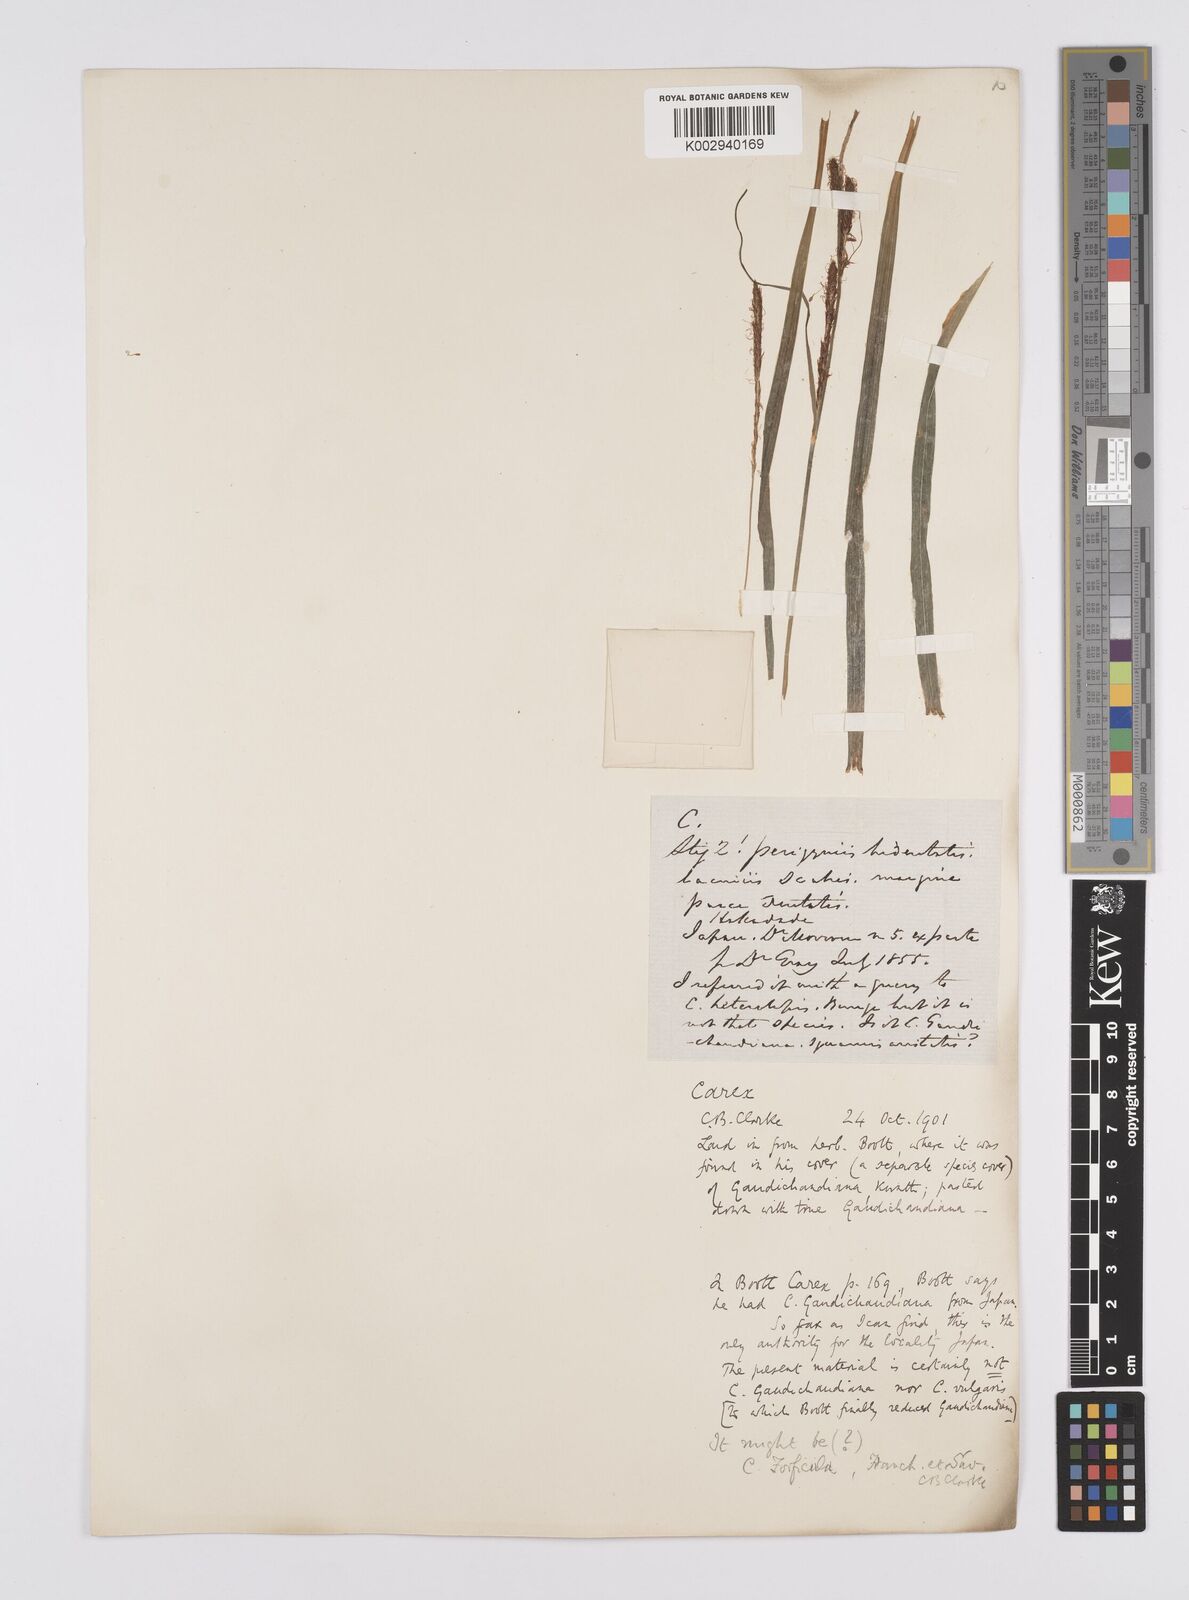 ROYAL BOTANIC GARDENS KEW
K002940169
C.
Stig 2! perigyniis bidentatis.
laciniis
margine
parce dentatis.
Hakodade
Japan. Dr Morrow n 5. ex parte
fr Dr Gray July 1855.
I referred it with a query to
C. heterolepis. Bunge but it is
not that species. Is it C. Gaudi
-chaudiana. squamis aristatis?
Carex
C.B. Clarke 24 Oct. 1901
Laid in from herb. Boott, where it was
found in his cover (a separate species cover)
of Gaudichaudiana, Kunth; pasted
down with true Gaudichaudiana —
In Boott Carex p. 169, Boott says
he had C. Gaudichaudiana from Japan.
So far as I can find, this is the
only authority for the locality Japan.
The present material is certainly not
C. Gaudichaudiana nor C. vulgaris
[to which Boott finally reduced Gaudichaudiana]
It might be (?)
C. Forficula, Franch. et Sav.
CB Clarke
inches
D50 Illuminant, 2 degree observer
Density
Don Williams
M000862
centimeters
Kew
Royal Botanic Gardens
copyright reserved
0 1 2 3 4 5 6 7 8 9 10
cm